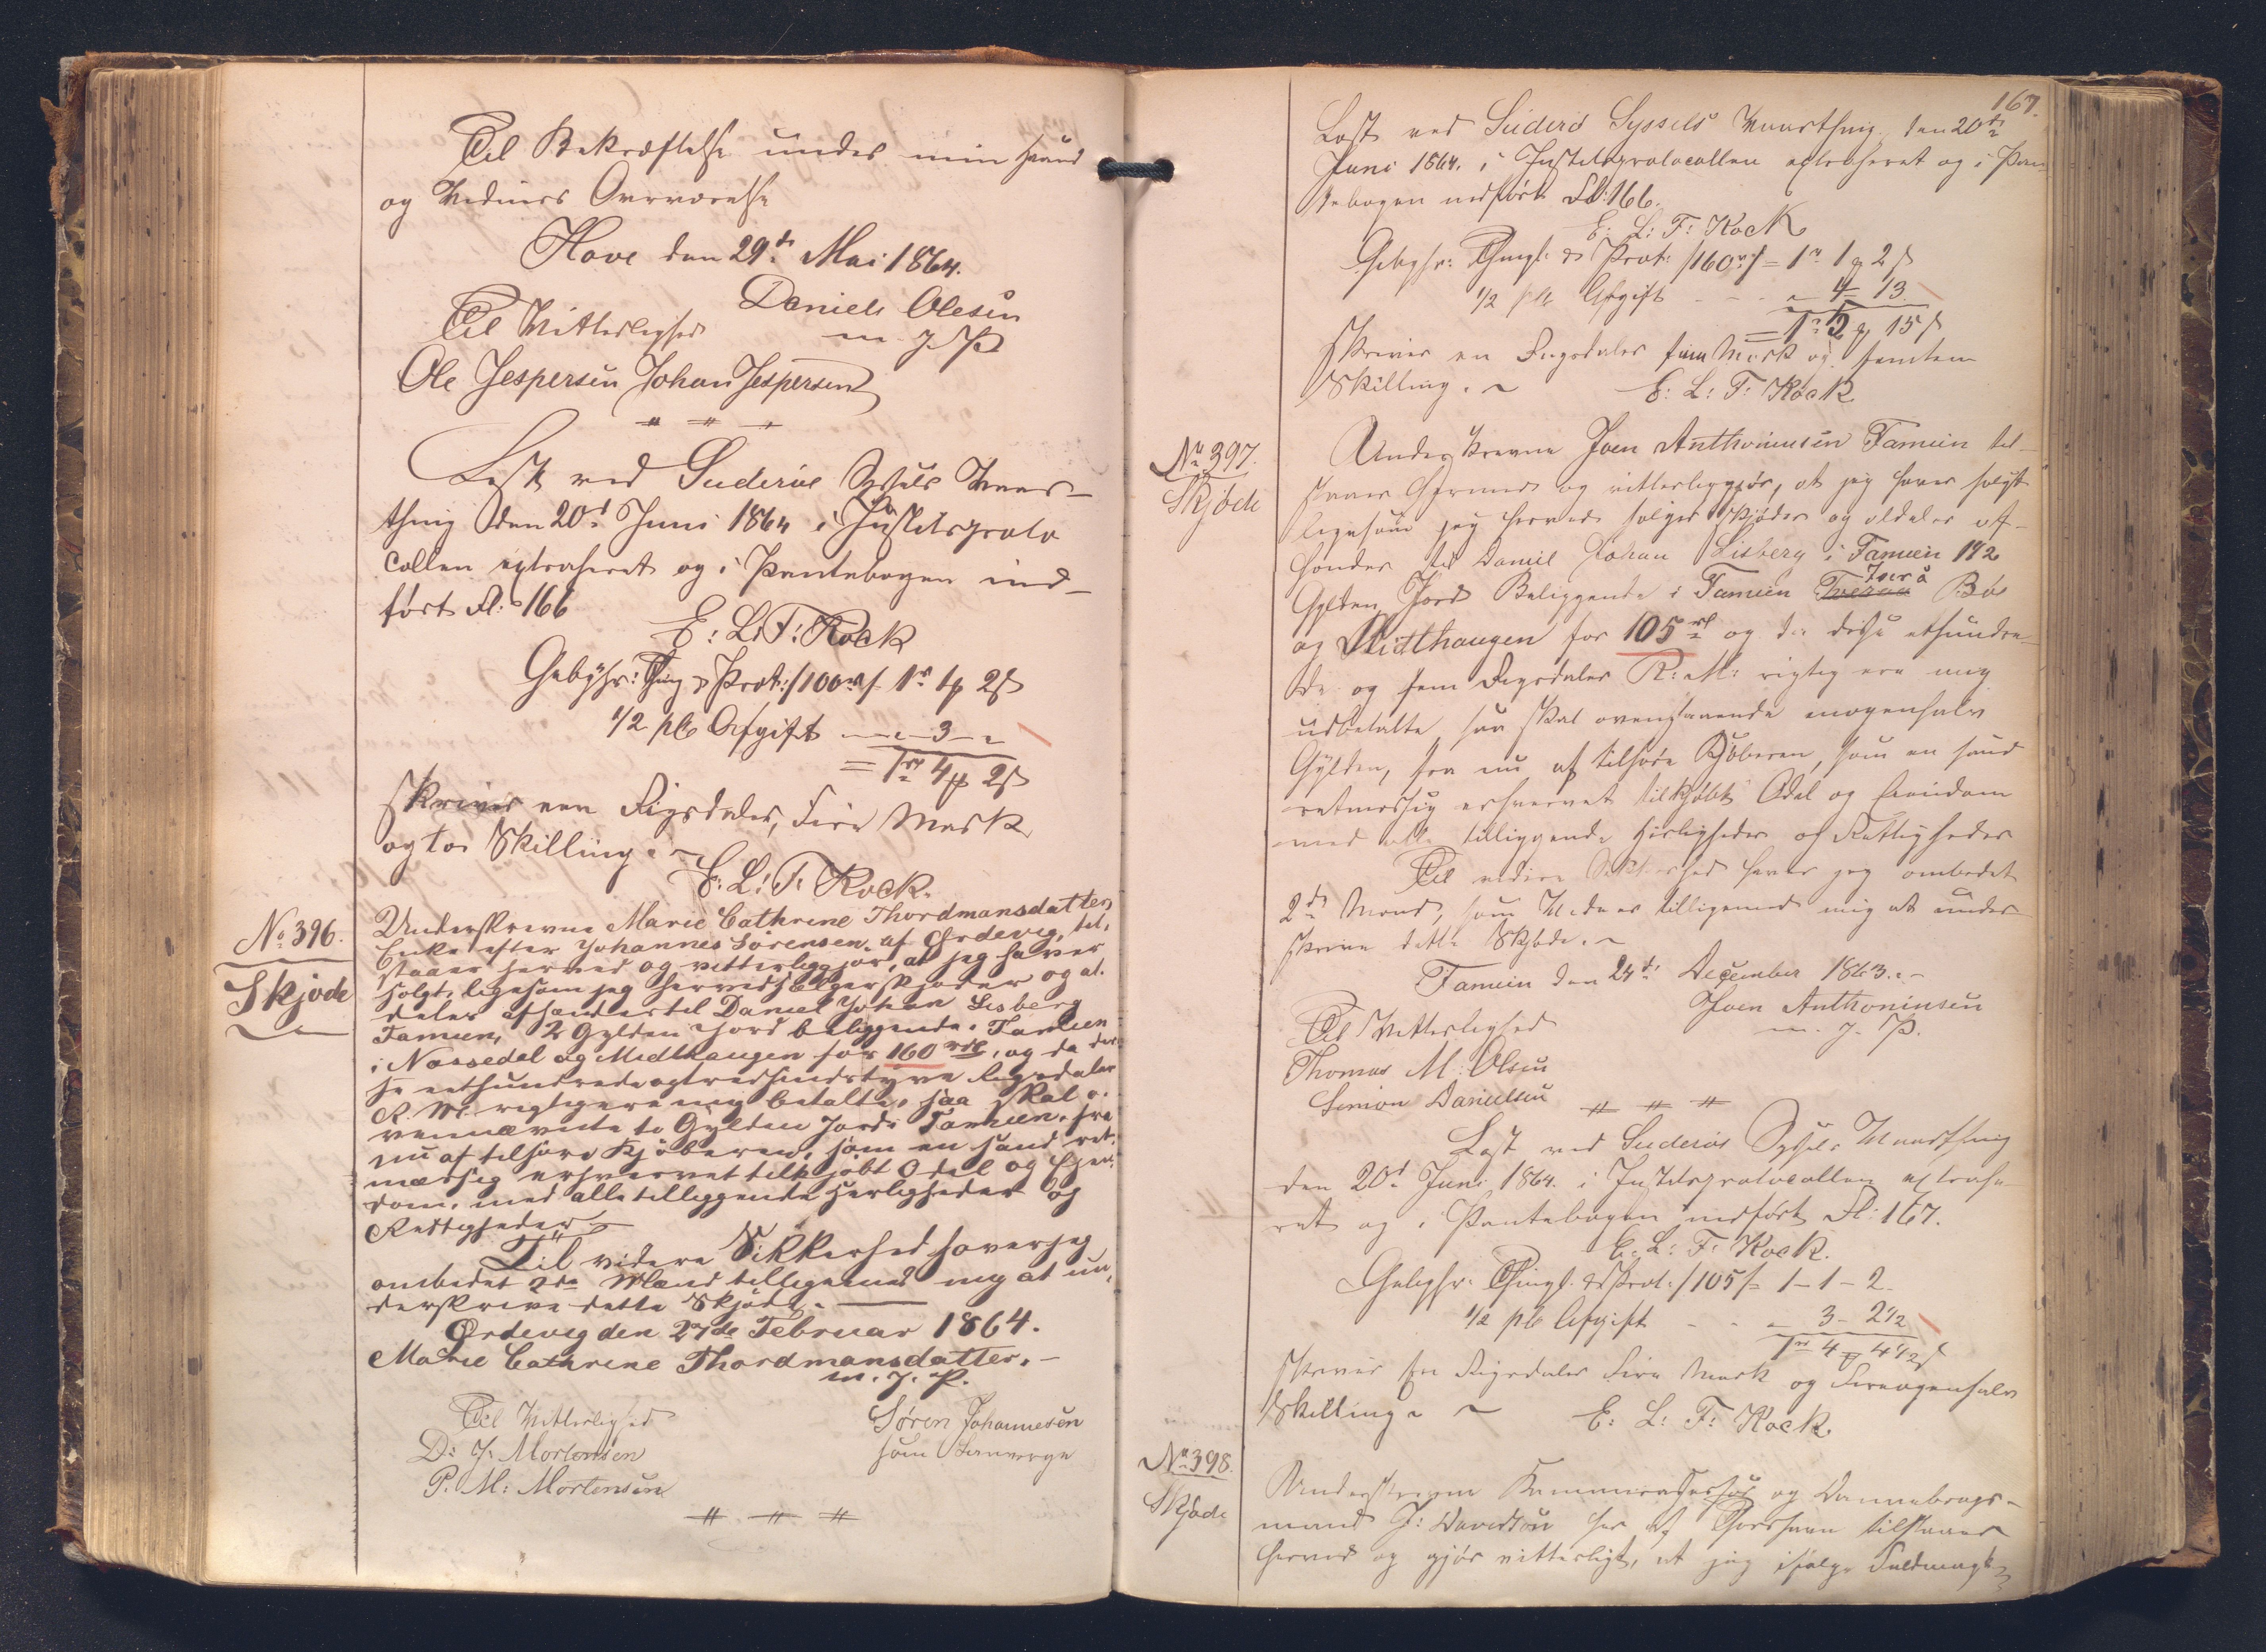 Til Bekræftelse under min Haand
og Vedners Overværelse
Hove den 29de Mai 1864.
Daniel Olesen
Til Vitterlighed m. f. P.
Ole Jespersen Johan Jespersen
Læst ved Suderøe Syssels Vaar-
thing den 20d Juni 1864 i Justitsproto
collen extraheret og i Pantebogen ind-
ført Fl: 166
E: L: F: Kock
Gebyhr: Thingl. & Prot: /100rd/ 1rd 1 ƒ 2 ß
1/2 pC Afgift - - 3 - -
= 1rd 4 ƒ 2 ß
skriver een Rigsdaler, Fire Mark
og to Skilling. ~
E: L: F: Kock.
No 396.
Skjøde
Underskrevne Marie Cathrine Thordmansdatter
Enke efter Johannes Sørensen af Ørdevig, til,
staaer herved og vitterliggjør, at jeg haver
solgt, ligesom jeg herved sælger skjøder og al.
deles afhænder til Daniel Johan Lisberg
Famien, 2 Gylden Jord beliggende i Famien
i Nossedal og Midthaugen for 160 rdl, og da dis
se eethundrede og tredsindstyve Rigsdaler
R. M. rigtig ere mig betalte, saa skal o.
vennævnte to Gylden Jord i Famien, fra
nu af tilhøre Kjøberen, som en sand ret.
mæssig erhvervet tilkjøbt Odel og Ejen,
dom, med alle tilliggende Herligheder og
Rettigheder
Til videre Sikkerhed haver jeg
ombedet 2de Mænd tilligemed mig at un,
derskrive dette Skjøde.
Ørdevig den 27de Februar 1864.
Marie Cathrine Thordmansdatter. -
m. f. P.
Til Vitterlighed Søren Johannesen
D: J: Mortensen som Laurverge
P. M: Mortensen
167.
Læst ved Suderø Syssels Vaarthing den 20de
Juni 1864. i Justitsprotocollen extraheret og i Pan-
tebogen indført Fl: 166.
E: L: F: Kock
Gebyhr: Thingl: & Prot: /160rd/ = 1rd 1 ƒ 2 ß
1/2 pC Afgift - - - 4 - 13
= 1rd 5 ƒ 15 ß
skriver en Rigsdaler fem Mark og femten
Skilling. ~ E: L: F: Kock
No 397.
Skjøde
Underskrevne Joen Anthoniusen Famien til-
staaer herved og vitterliggjør, at jeg haver solgt
ligesom jeg herved sælger skjøder og aldeles af-
hænder til Daniel Johan Lisberg i Famien 1 1/2
Gylden Jord Beliggende i Famien Tveraa Tverå Bøe
og Midthaugen for 105 rd og da disse ethundre-
de og fem Rigsdaler R: M: rigtig ere mig
udbetalte, saa skal ovenstaaende enogenhalv
Gylden, fra nu af tilhøre Kjøberen, som en sand
retmæssig erhvervet tilkjøbt Odel og Eiendom
med alle tilliggende Herligheder og Rettigheder
Til videre Sikkerhed haver jeg ombedet
2de Mænd, som Vedner tilligemed mig at under-
skrive dette Skjøde. ~
Famien den 24de December 1863. -
Joen Anthoniusen
Til Vitterlighed m. f. P.
Thomas M: Olsen
Simon Danielsen
Læst ved Suderøe Syssels Vaarthing
den 20d Juni 1864. i Justitsprotocollen extrahe
ret og i Pantebogen indført Fl: 167.
E: L: F: Kock.
Gebyhr: Thingl. & Prot: /105/ = 1 - 1 - 2
1/2 pC Afgift - - - 3 - 2 1/2
1rd 4 ƒ 4 1/2 ß
skriver En Rigsdaler Fire Mark og Fireogenhalv
Skilling ~ E: L: F: Kock.
No 398.
Skjøde
Underskrevne Kammerassessor og Dannebrogs-
mand J: Davidsen her af Thorshavn tilstaaer
herved og gjør vitterligt, at jeg ifølge Fuldmagt